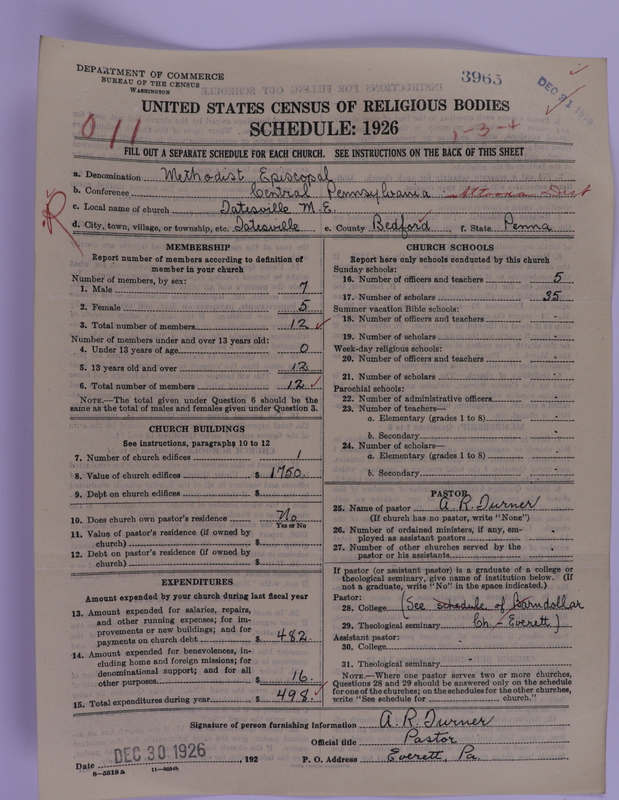 DEPARTMENT OF COMMERCE
BUREAU OF THE CENSUS
WASHINGTON
3965
DEC 21 1926
UNITED STATES CENSUS OF RELIGIOUS BODIES
SCHEDULE: 1926
011
1-3-4
FILL OUT A SEPARATE SCHEDULE FOR EACH CHURCH. SEE INSTRUCTIONS ON THE BACK OF THIS SHEET
a. Denomination Methodist Episcopal
b. Conference Central Pennsylvania Altoona Dist
c. Local name of church Tatesville M.E.
d. City, town, village, or township, etc. Tatesville e. County Bedford, f. State Penna
MEMBERSHIP
Report number of members according to definition of member in your church
Number of members, by sex:
1. Male 7
2. Female 5
3. Total number of members 12
Number of members under and over 13 years old:
4. Under 13 years of age 0
5. 13 years old and over 12
6. Total number of members 12
NOTE.—The total given under Question 6 should be the same as the total of males and females given under Question 3.
CHURCH BUILDINGS
See instructions, paragraphs 10 to 12
7. Number of church edifices 1
8. Value of church edifices $ 1750.
9. Debt on church edifices $
10. Does church own pastor's residence No
Yes or No
11. Value of pastor's residence (if owned by church) $
12. Debt on pastor's residence (if owned by church) $
EXPENDITURES
Amount expended by your church during last fiscal year
13. Amount expended for salaries, repairs, and other running expenses; for improvements or new buildings; and for payments on church debt $ 482
14. Amount expended for benevolences, including home and foreign missions; for denominational support; and for all other purposes $ 16.
15. Total expenditures during year $ 498.
CHURCH SCHOOLS
Report here only schools conducted by this church
Sunday schools:
16. Number of officers and teachers 5
17. Number of scholars 35
Summer vacation Bible schools:
18. Number of officers and teachers -
19. Number of scholars -
Week-day religious schools:
20. Number of officers and teachers -
21. Number of scholars -
Parochial schools:
22. Number of administrative officers -
23. Number of teachers—
a. Elementary (grades 1 to 8) -
b. Secondary -
24. Number of scholars—
a. Elementary (grades 1 to 8) -
b. Secondary -
PASTOR
25. Name of pastor A. R. Turner
(If church has no pastor, write "None")
26. Number of ordained ministers, if any, employed as assistant pastors -
27. Number of other churches served by the pastor or his assistants -
If pastor (or assistant pastor) is a graduate of a college or theological seminary, give name of institution below. (If not a graduate, write "No" in the space indicated.)
Pastor:
28. College (See schedule of Barndollar
29. Theological seminary Ch - Everett)
Assistant pastor:
30. College -
31. Theological seminary -
NOTE.—Where one pastor serves two or more churches, Questions 28 and 29 should be answered only on the schedule for one of the churches; on the schedules for the other churches, write "See schedule for church."
Signature of person furnishing information A. R. Turner
Official title Pastor
Date DEC 30 1926, 192 P. O. Address Everett, Pa.
8-5518a